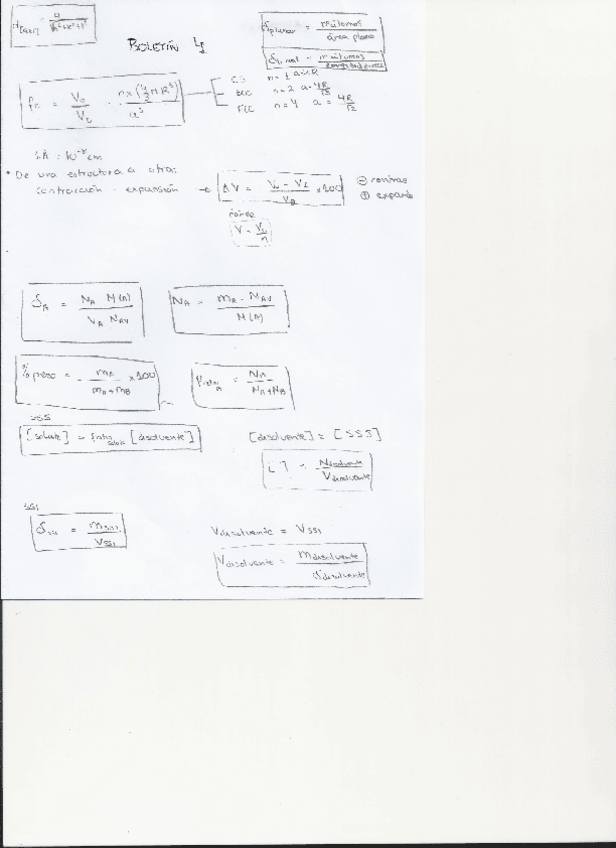 BOLETÍN 4
δplanar = nºátomos / área plano
δlineal = nºátomos / longitud línea
fe = Vo / Vc = n×(4/3 π R³) / a³
CS n=1 a=2R
BCC n=2 a=4R/√3
FCC n=4 a=4R/√2
1Å = 10⁻⁸ cm
• De una estructura a otra:
contracción - expansión → ΔV = ×100
⊖ contrae
⊕ expande
donde
V =
δA = NA M(A) / VA NAV
NA = mA · NAV / M(A)
% peso = mA / mA+mB ×100
fatA = NA / NA+NB
SSS
[soluto] = fat [disolvente]
[disolvente] = [SSS]
[ ] = Ndisolvente / Vdisolvente
SSI
δSSI = mSSI / VSSI
Vdisolvente = VSSI
Vdisolvente = mdisolvente / δdisolvente